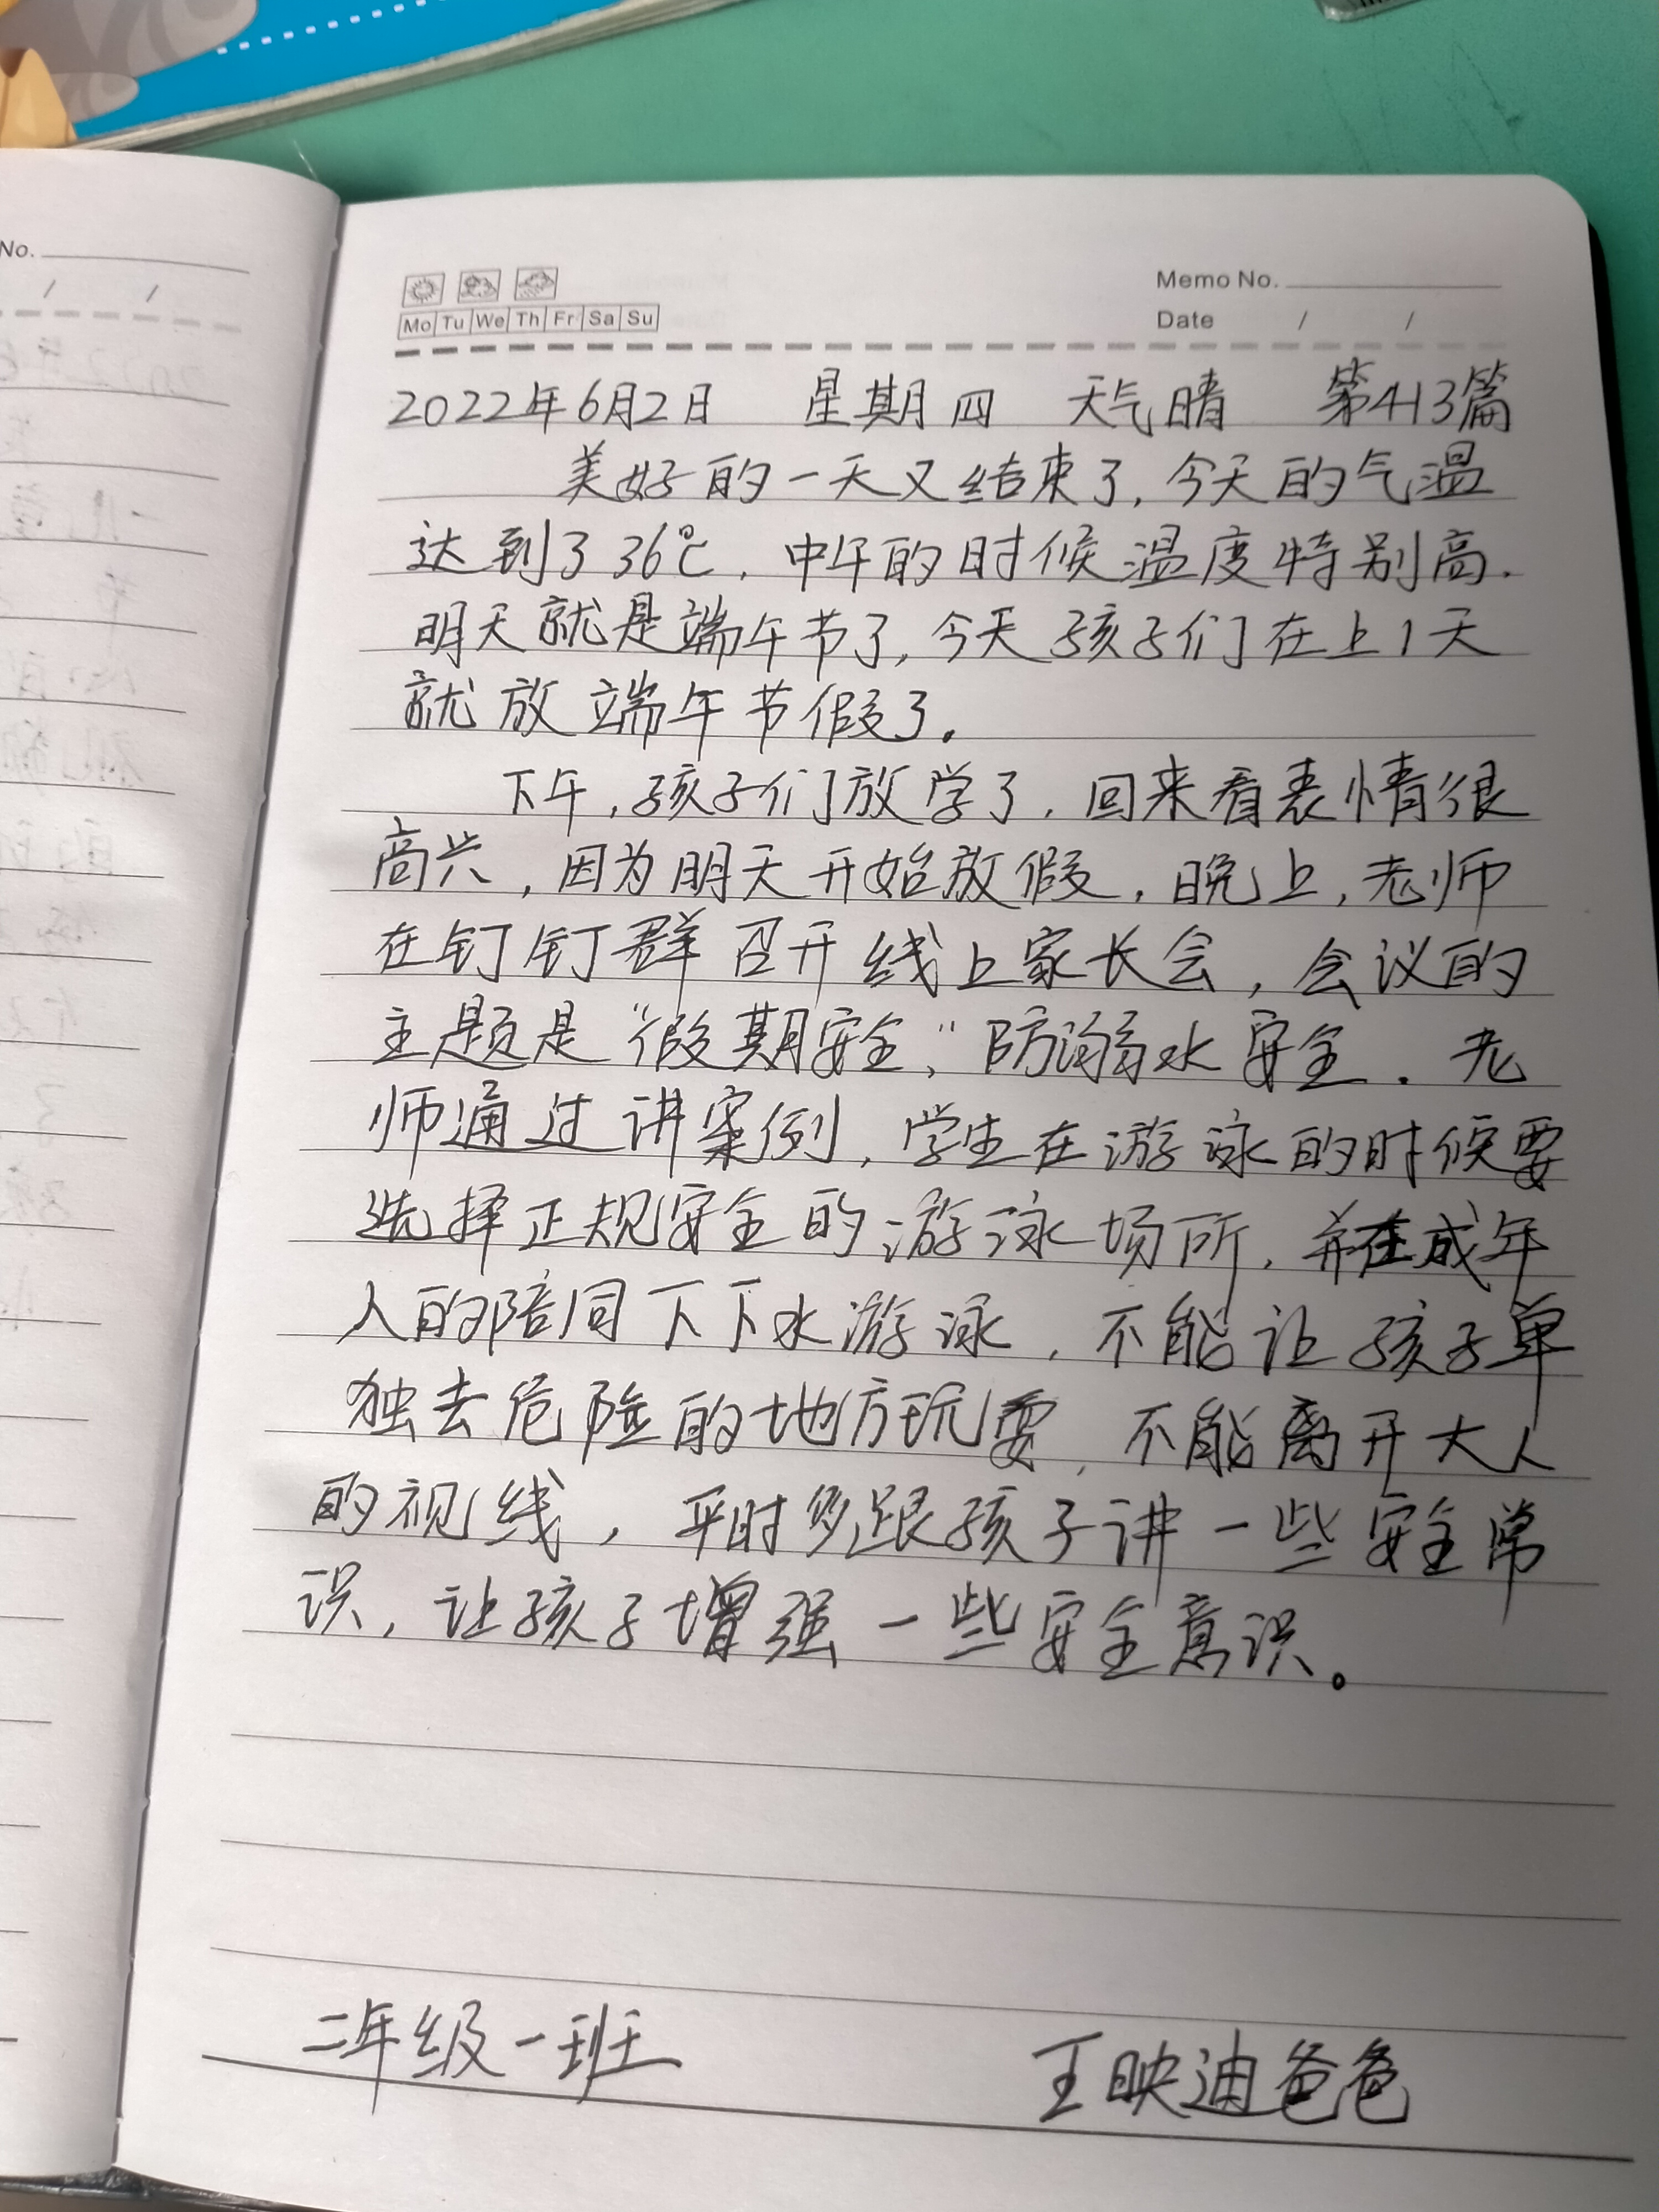 No.
/ /
Mo Tu We Th Fr Sa Su
Memo No.
Date / /
2022年6月2日 星期四 天气晴 第413篇
美好的一天又结束了,今天的气温
达到了36℃,中午的时候温度特别高.
明天就是端午节了,今天孩子们在上1天
就放端午节假了。
下午,孩子们放学了,回来看表情很
高兴,因为明天开始放假,晚上,老师
在钉钉群召开线上家长会,会议的
主题是“假期安全,”防溺水安全.老
师通过讲案例,学生在游泳的时候要
选择正规安全的游泳场所,并在成年
人的陪同下下水游泳,不能让孩子单
独去危险的地方玩耍,不能离开大人
的视线,平时多跟孩子讲一些安全常
识,让孩子增强一些安全意识。
二年级一班 王映迪爸爸